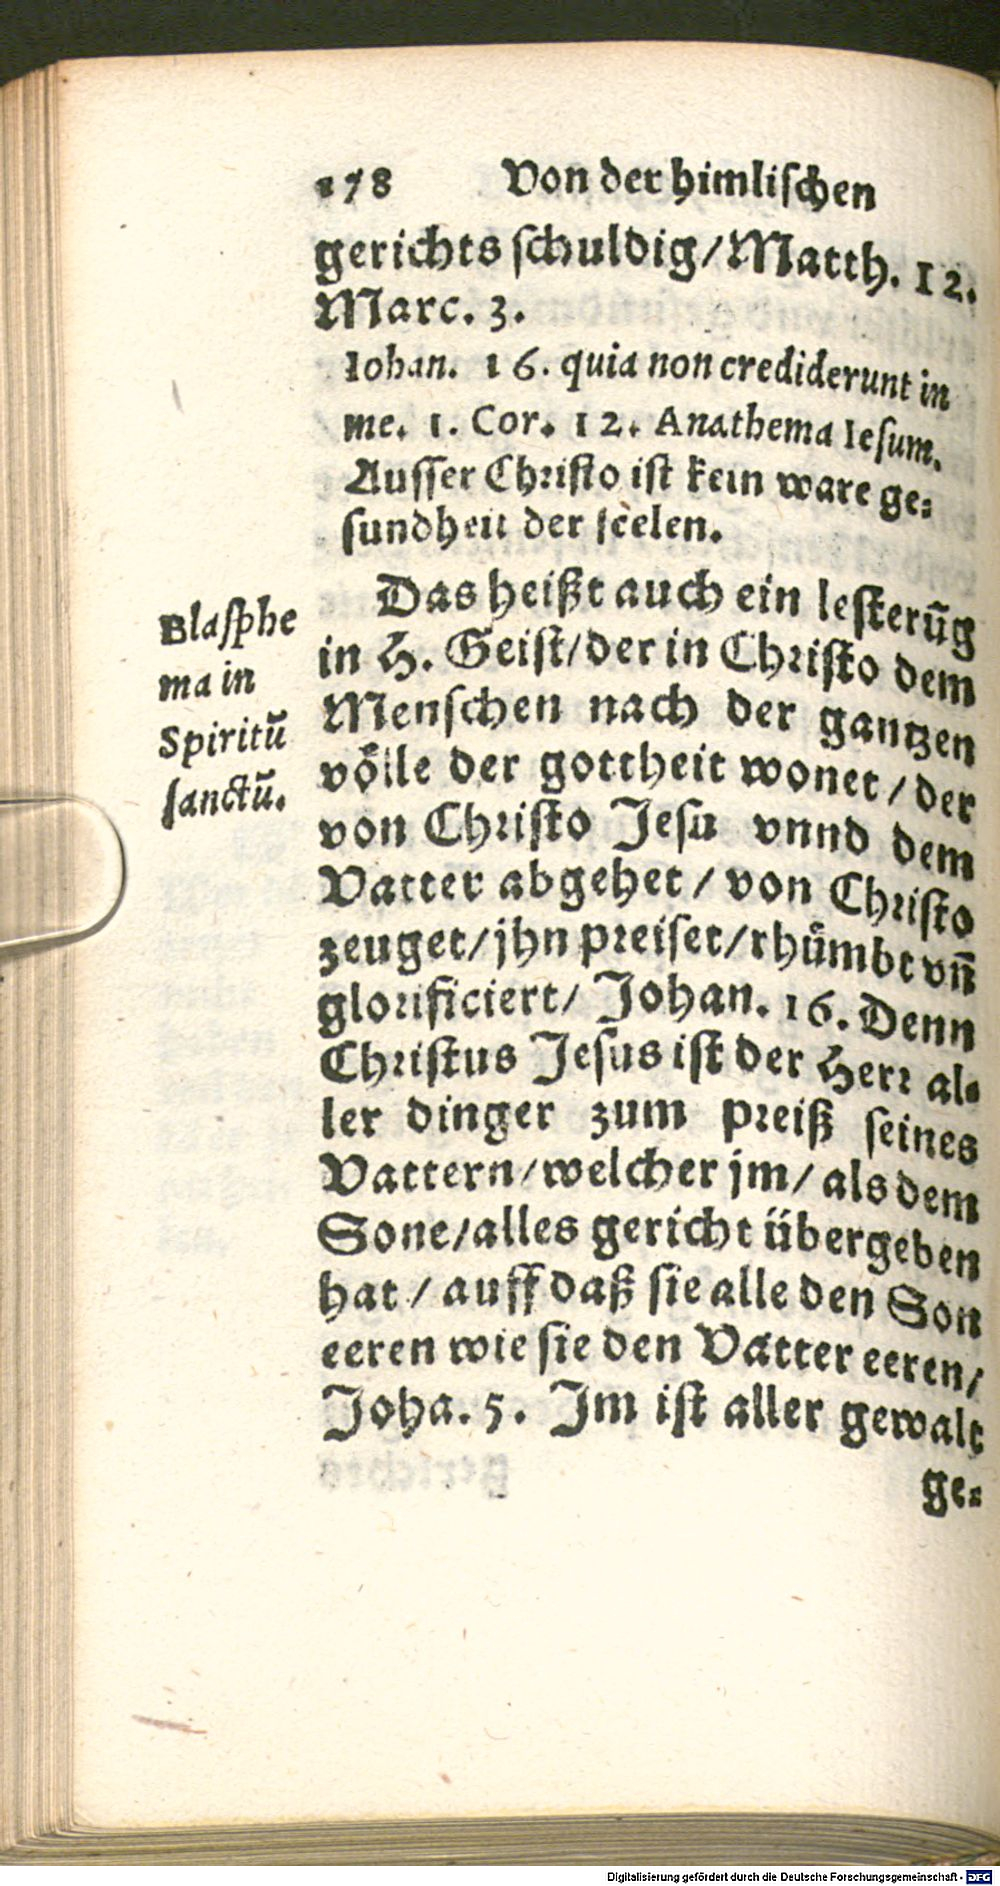 178 Von der himlischen
gerichts schuldig/Matth. 12.
Marc. 3.
Iohan. 16. quia non crediderunt in
me. 1. Cor. 12. Anathema Iesum.
Ausser Christo ist kein ware ge-
sundheit der seelen.
Das heißt auch ein lesterūg
in H. Geist/der in Christo dem
Menschen nach der gantzen
völle der gottheit wonet/der
von Christo Jesu vnnd dem
Vatter abgehet/von Christo
zeuget/jhn preiset/rhümbt vñ
glorificiert/ Johan. 16. Denn
Christus Jesus ist der Herr al-
ler dinger zum preiß seines
Vattern/welcher jm/als dem
Sone/alles gericht übergeben
hat/auff daß sie alle den Son
eeren wie sie den Vatter eeren/
Joha. 5. Im ist aller gewalt
ge-
Blasphe
ma in
Spiritū
sanctū.
Digitalisierung gefördert durch die Deutsche Forschungsgemeinschaft - DFG